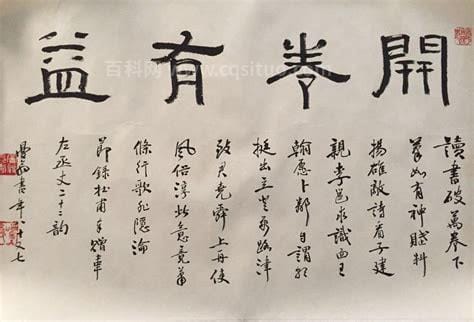 開卷有益
讀書破萬卷下
筆如有神賦料
揚雄敵詩看子建
親李邕求識面王
翰愿卜鄰自謂頗
挺出立登要路津
致君堯舜上再使
風俗淳此意竟蕭
條行歌非隱淪
節錄杜甫奉贈韋
左丞丈二十二韵
書年八十七
百科网 www.cqsituo.com